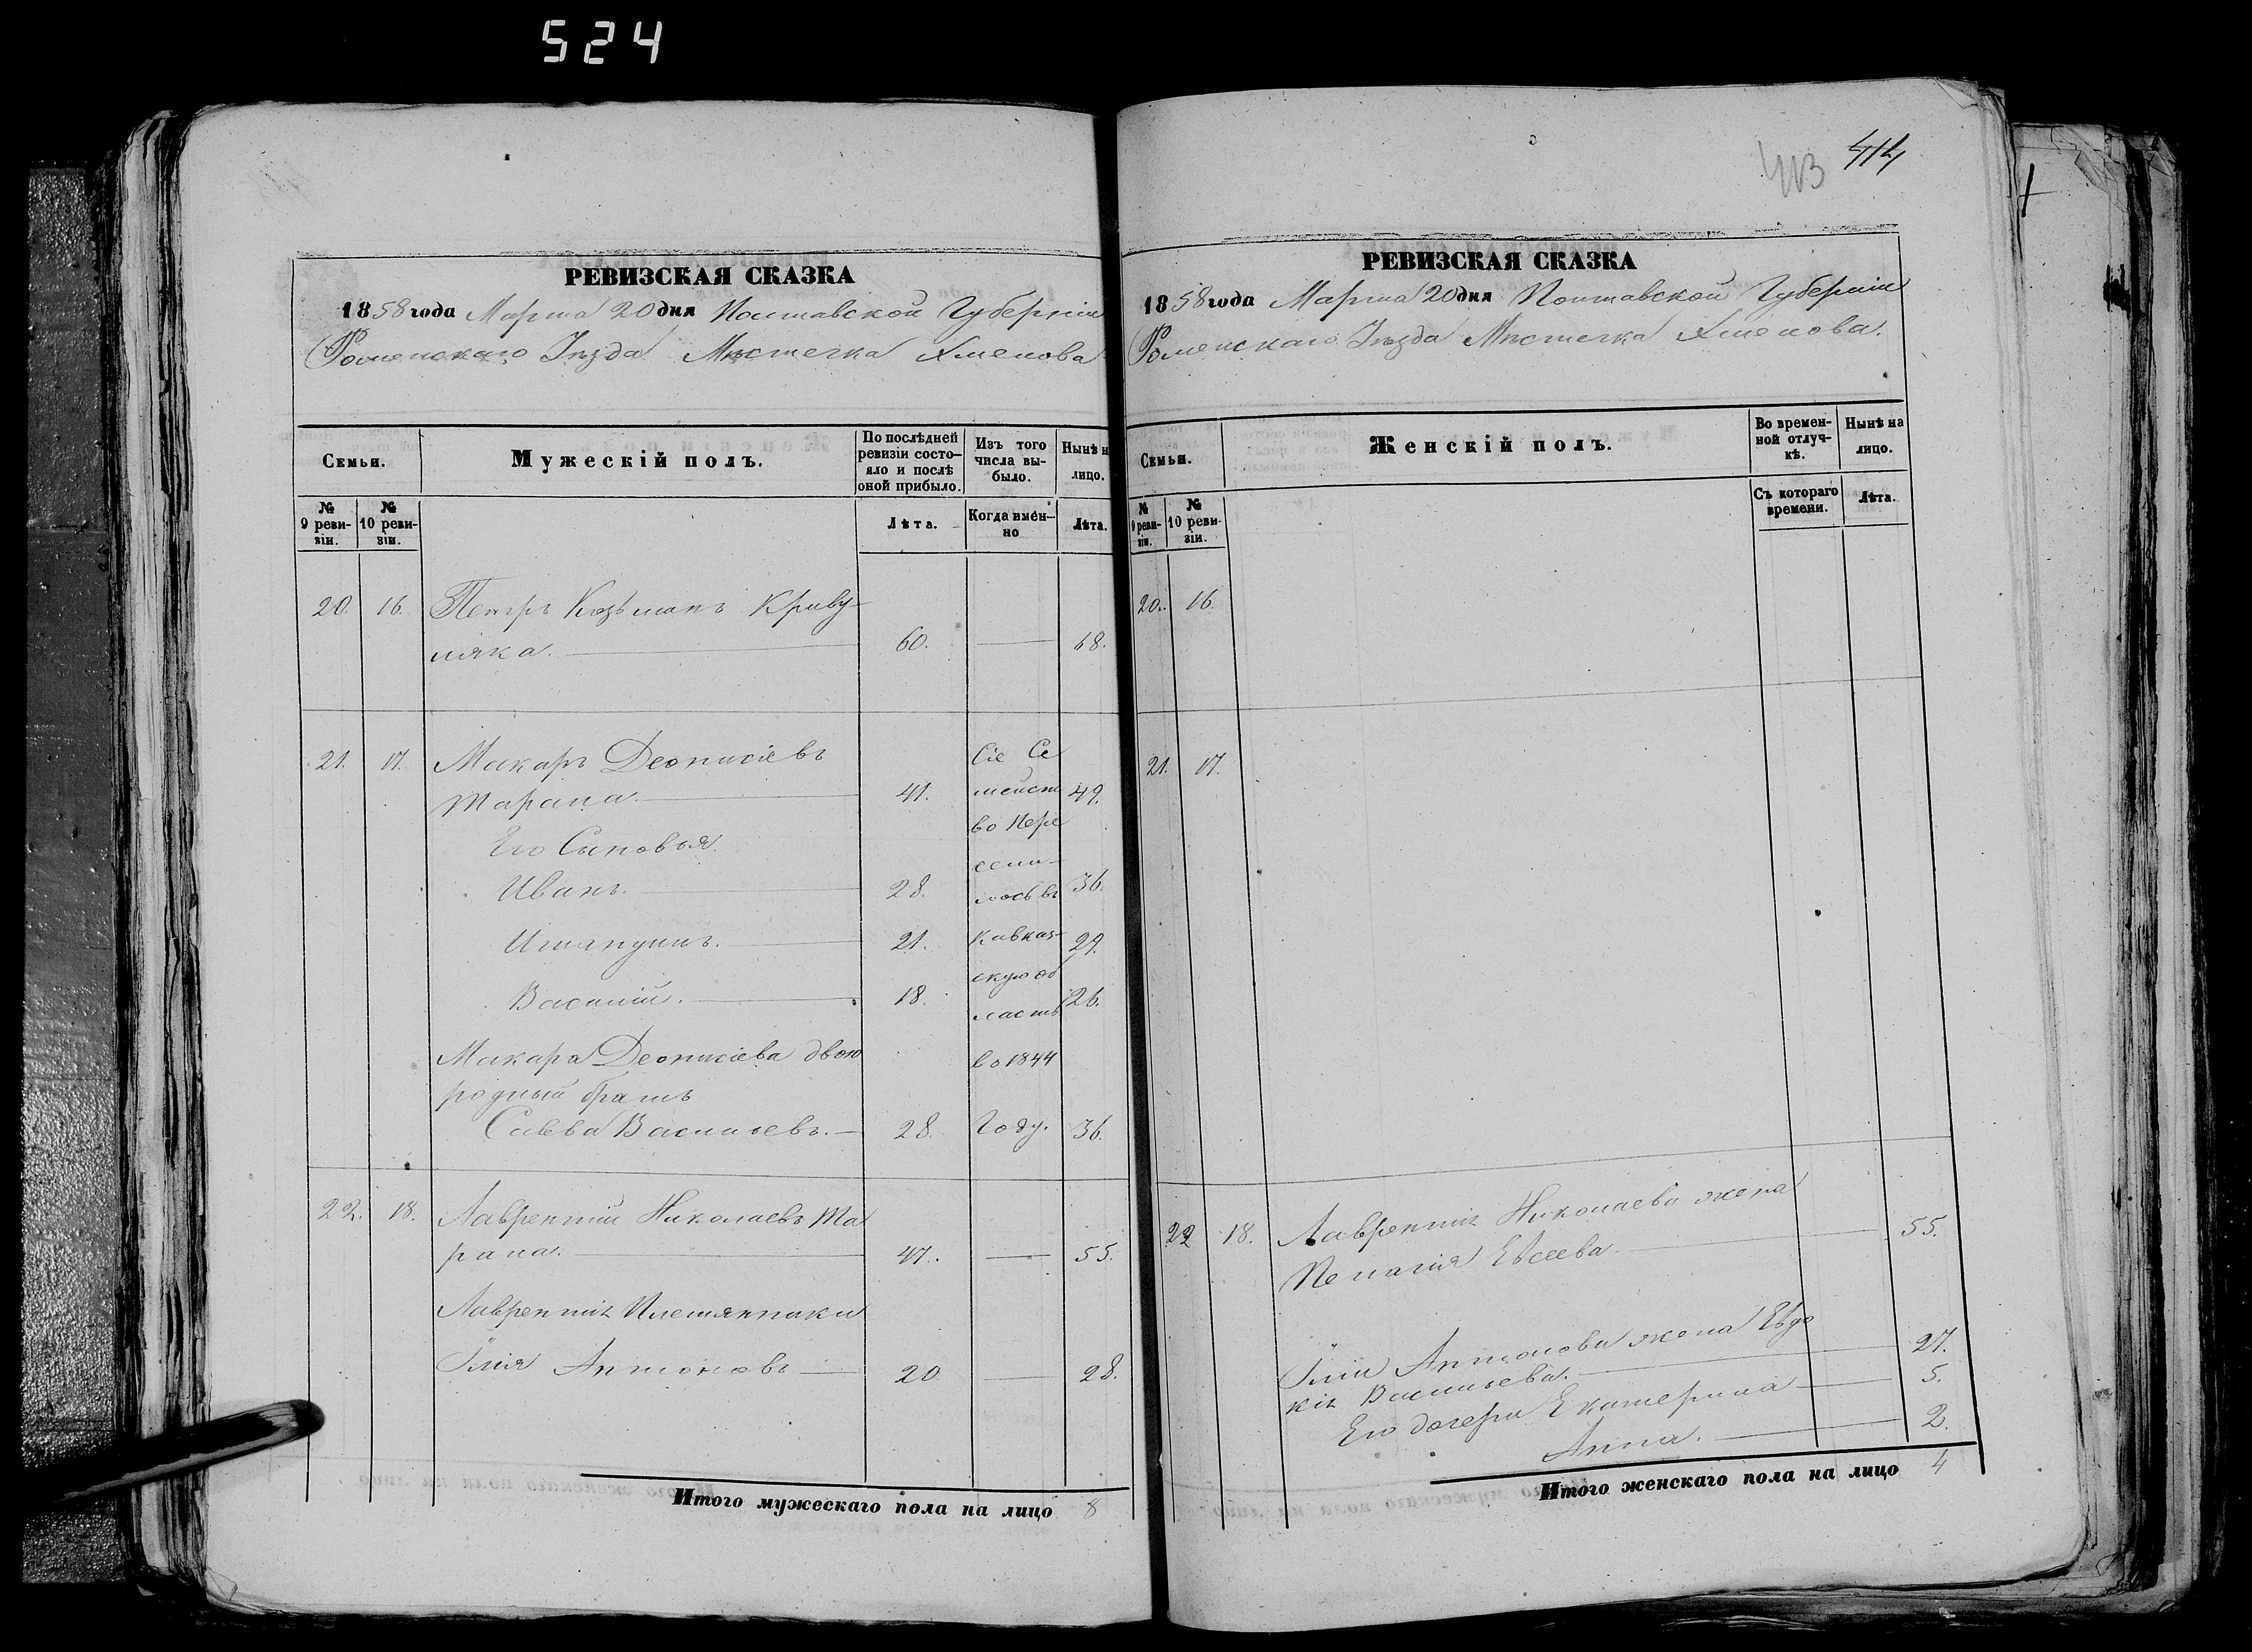 524
413 414
РЕВИЗСКАЯ СКАЗКА
1858 года Марта 20 дня Полтавской Губерніи
Роменскаго Уѣзда Мѣстечка Хмелова
Семьи.
Мужескій полъ.
По послѣдней ревизіи состояло и послѣ оной прибыло.
Изъ того числа выбыло.
Нынѣ на лицо.
№ 9 ревизіи.
№ 10 ревизіи.
Лѣта.
Когда именно
Лѣта.
20. 16. Петръ Козьманъ Криву-
ляка. 60. 68.
21. 17. Макаръ Деонисіевъ
Тарана. 41. 49.
Его Сыновья.
Иванъ. 28. 36.
21. 29.
Василій. 18. 26.
Макара Деонисіева двою
родный братъ
Савва Васильевъ. 28. 36.
Сіе Се
мейст
во Пере
сели-
лось въ
Кавказ-
скую об
ласть
во 1844
Году.
22. 18. Лаврентій Николаевъ Та
рана. 47. 55.
Лаврентія Племянники
Илія Антоновъ 20. 28.
Итого мужескаго пола на лицо 8
РЕВИЗСКАЯ СКАЗКА
1858 года Марта 20 дня Полтавской Губерніи
Роменскаго Уѣзда Мѣстечка Хмелова.
Семьи.
Женскій полъ.
Во временной отлучкѣ.
Нынѣ на лицо.
№ 9 ревизіи.
№ 10 ревизіи.
Съ котораго времени.
Лѣта.
20. 16.
21. 17.
22 18. Лаврентія Николаева жена
Пелагія Евсеева. 55.
Иліи Антонова жена Евдо
кія Васильева. 27.
Его дочери Екатерина 5.
Анна. 2.
Итого женскаго пола на лицо 4